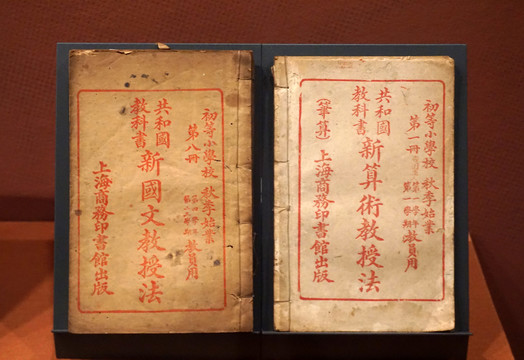 初等小學校 秋季始業
第八冊 教員用
共和國
教科書
新國文教授法
上海商務印書館出版
初等小學校 秋季始業
第一冊
第一學年
第一學期
教員用
共和國
教科書
新算術教授法
(筆算) 上海商務印書館出版